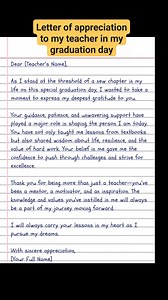 Letter of appreciation
to my teacher in my
graduation day
Dear [Teacher's Name],
As I stand at the threshold of a new chapter in my
life on this special graduation day, I wanted to take a
moment to express my deepest gratitude to you.
Your guidance, patience, and unwavering support have
played a major role in shaping the person I am today.
You have not only taught me lessons from textbooks
but also shared wisdom about life, resilience, and the
value of hard work. Your belief in me gave me the
confidence to push through challenges and strive for
excellence.
Thank you for being more than just a teacher—you've
been a mentor, a motivator, and an inspiration. The
knowledge and values you've instilled in me will always
be a part of my journey moving forward.
I will always carry your lessons in my heart as I
pursue my dreams.
With sincere appreciation,
[Your Full Name]